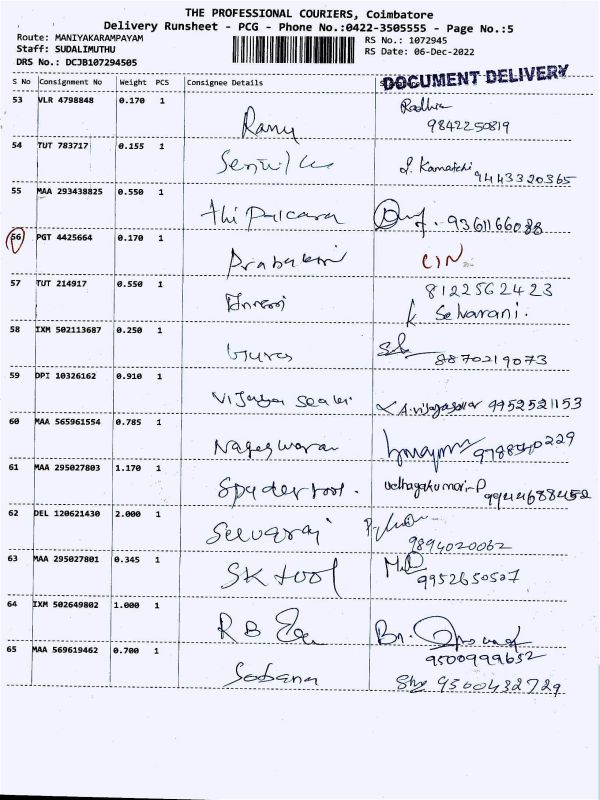 THE PROFESSIONAL COURIERS, Coimbatore
Delivery Runsheet - PCG - Phone No.:0422-3505555 - Page No.:5
Route: MANIYAKARAMPAYAM
Staff: SUDALIMUTHU
DRS No.: DCJB107294505
RS No.: 1072945
RS Date: 06-Dec-2022
S No Consignment No Weight PCS Consignee Details
DOCUMENT DELIVERY
53 VLR 4798848 0.170 1 Ramy Radhia
9842250819
54 TUT 783717 0.155 1 Senthil J. Kamatchi
9443320365
55 MAA 293438825 0.550 1 9361166088
56 PGT 4425664 0.170 1 Prabakari
57 TUT 214917 0.550 1 8122562423
K Selvarani.
58 IXM 502113687 0.250 1 Guru
8870219073
59 DPI 10326162 0.910 1 Vijaya 9952521153
60 MAA 565961554 0.785 1 Nageswaran
61 MAA 295027803 1.170 1 Spydertool.
9944688452
62 DEL 120621430 2.000 1 Selvaraj
9894020062
63 MAA 295027801 0.345 1 SK tool
9952650507
64 IXM 502649802 1.000 1 RB
9500999652
65 MAA 569619462 0.700 1 Sobana 9500432729